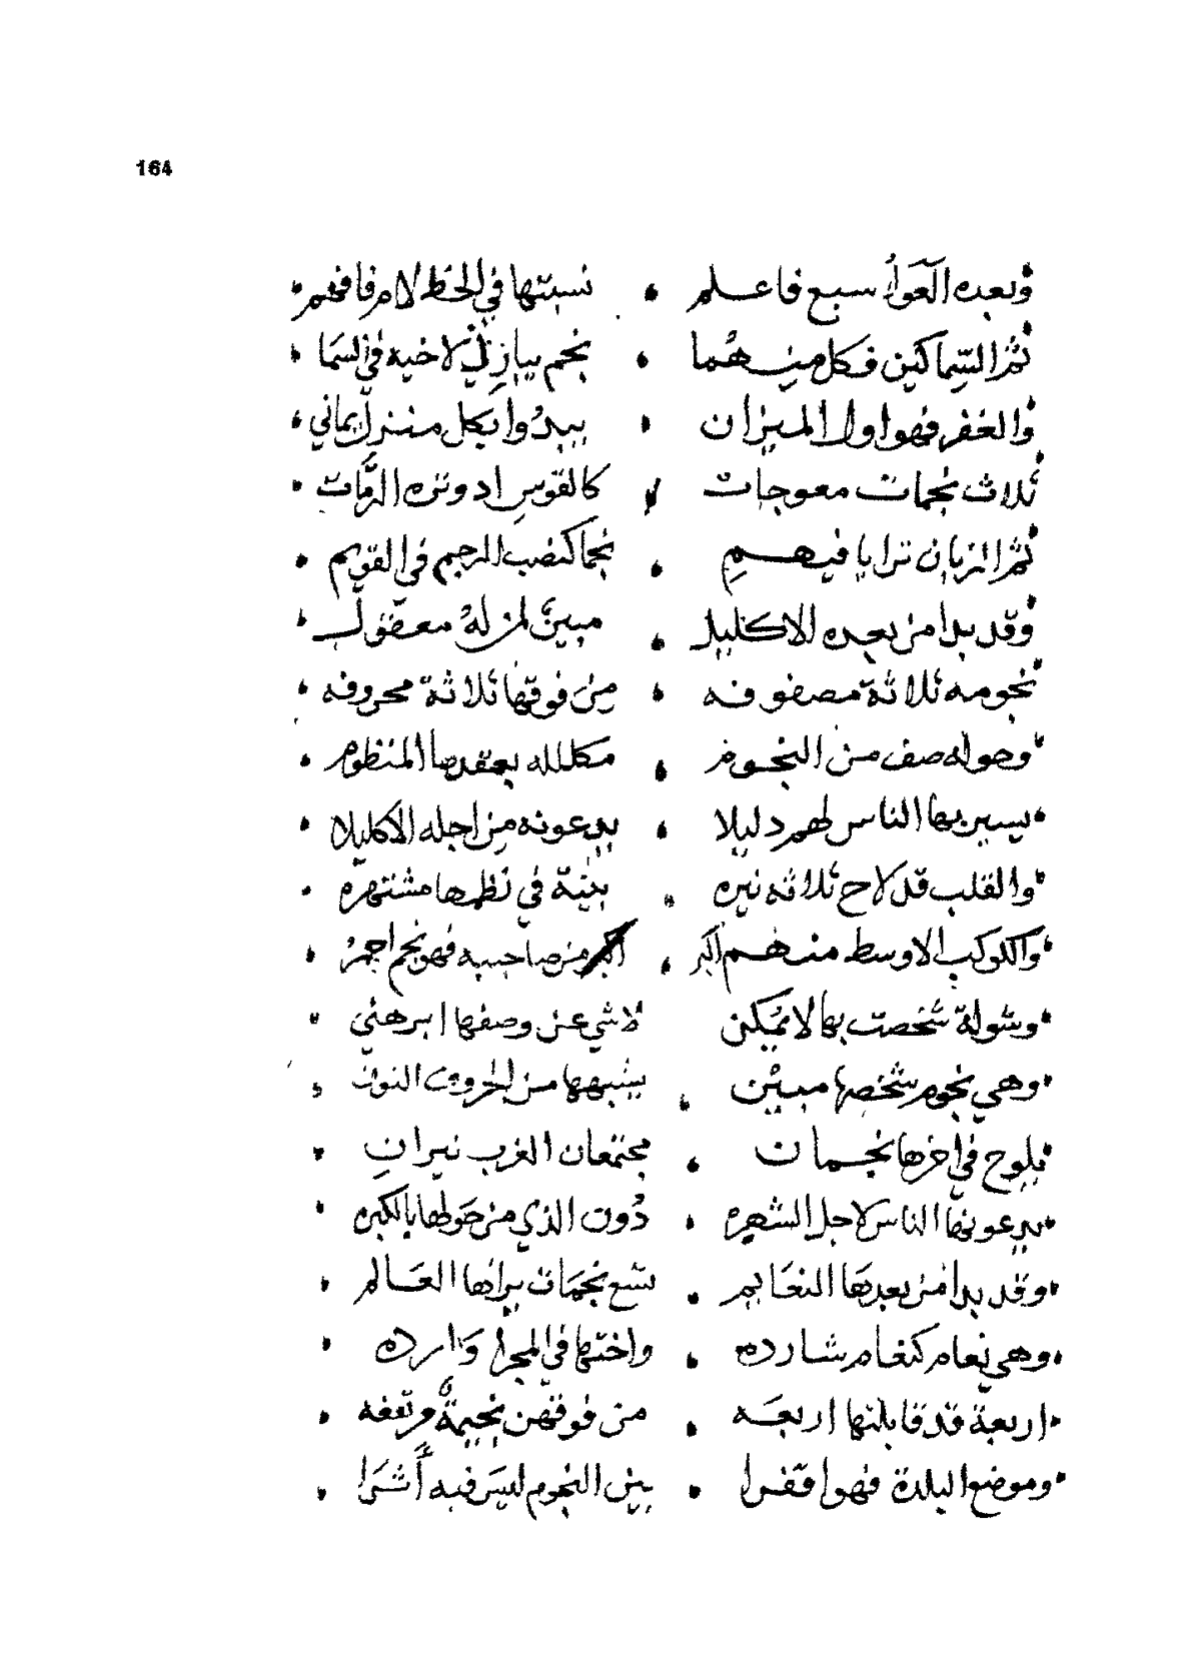 164
وبعده العوا سبع فاعلم • نسبتها في الخط لام فافهم
ثم السماكين فكل منهما • نجم يباري لاخيه في السما
والغفر فهو اول الميزان • يبدوا بكل منزل يماني
ثلاث نجمات معوجات • كالقوس اد وتره الرمات
ثم الزبان ترايا فيهم • نجما كنصب المرجم في القويم
وقد بدا من بعده الاكليل • مبين لمن له معقول
نجومه ثلاثة مصفوفه • من فوقها ثلاثة محروفه
وحوله صف من النجوم • مكلله بعقدها المنظوم
يسير بها الناس لهم دليلا • يدعونه من اجله الاكليلا
والقلب قد لاح ثلاثه نيره • بينة في نظمها مشتهره
والكوكب الاوسط منهم اكبر • اكبر من صاحبيه فهو نجم احمر
وشولة شخصت بها لا يمكن • لاشي عن وصفها ابرهني
وهي نجوم شخصها مبين • يشبهها من الحروف النون
يلوح في اخرها نجمان • مجتمعان الغرب نيران
يدعونها الناس لاجل الشهره • دون الذي من حولها بالكبره
وقد بدا من بعدها النعايم • تسع نجمات يراها العالم
وهي نعام كنعام شارده • واختها في المجرا وارده
اربعة قد قابلتها اربعه • من فوقهن نجيمة مرتفعه
وموضع البلدة فهوا قفرا • بين النجوم ليس فيه أثرا